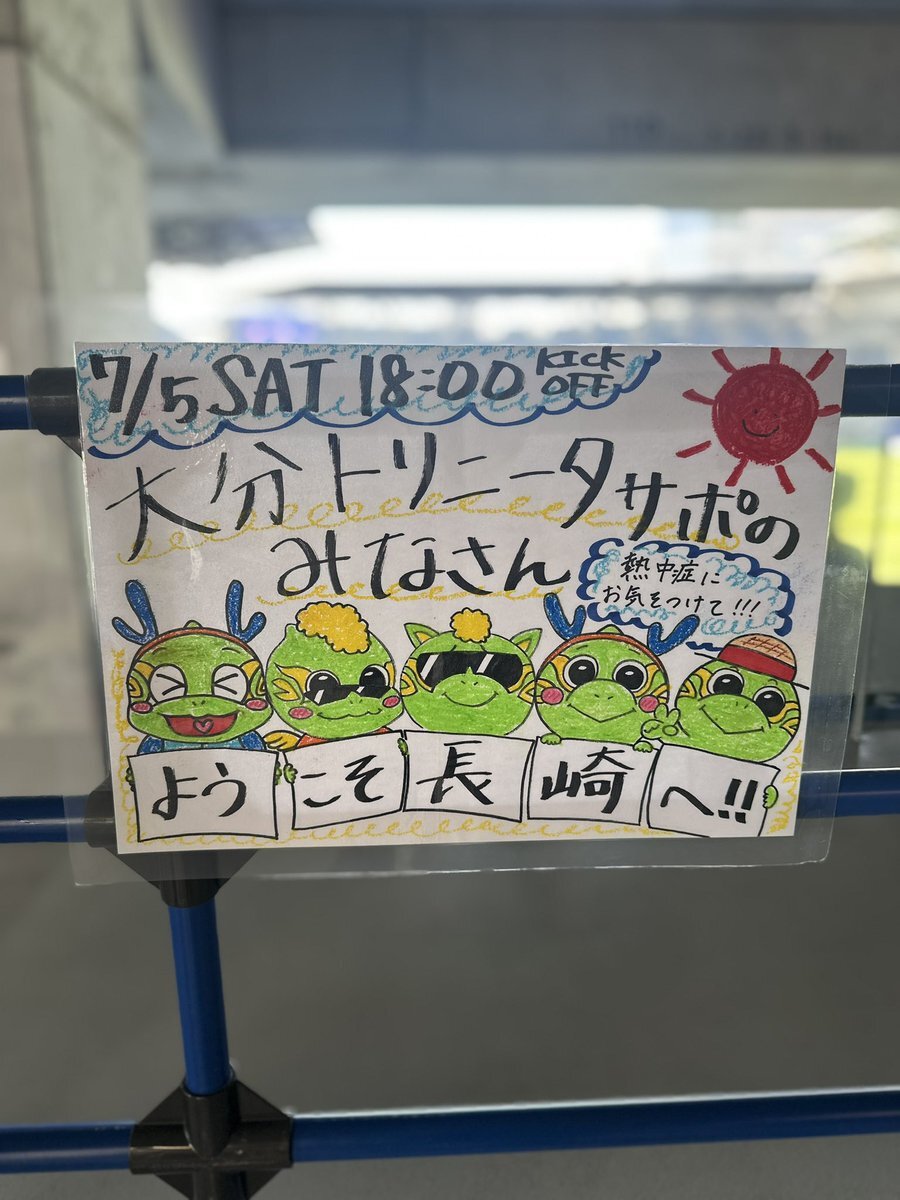 7/5 SAT 18:00 KICK OFF
大分トリニータサポの
みなさん
熱中症に
お気をつけて!!!
ようこそ長崎へ!!